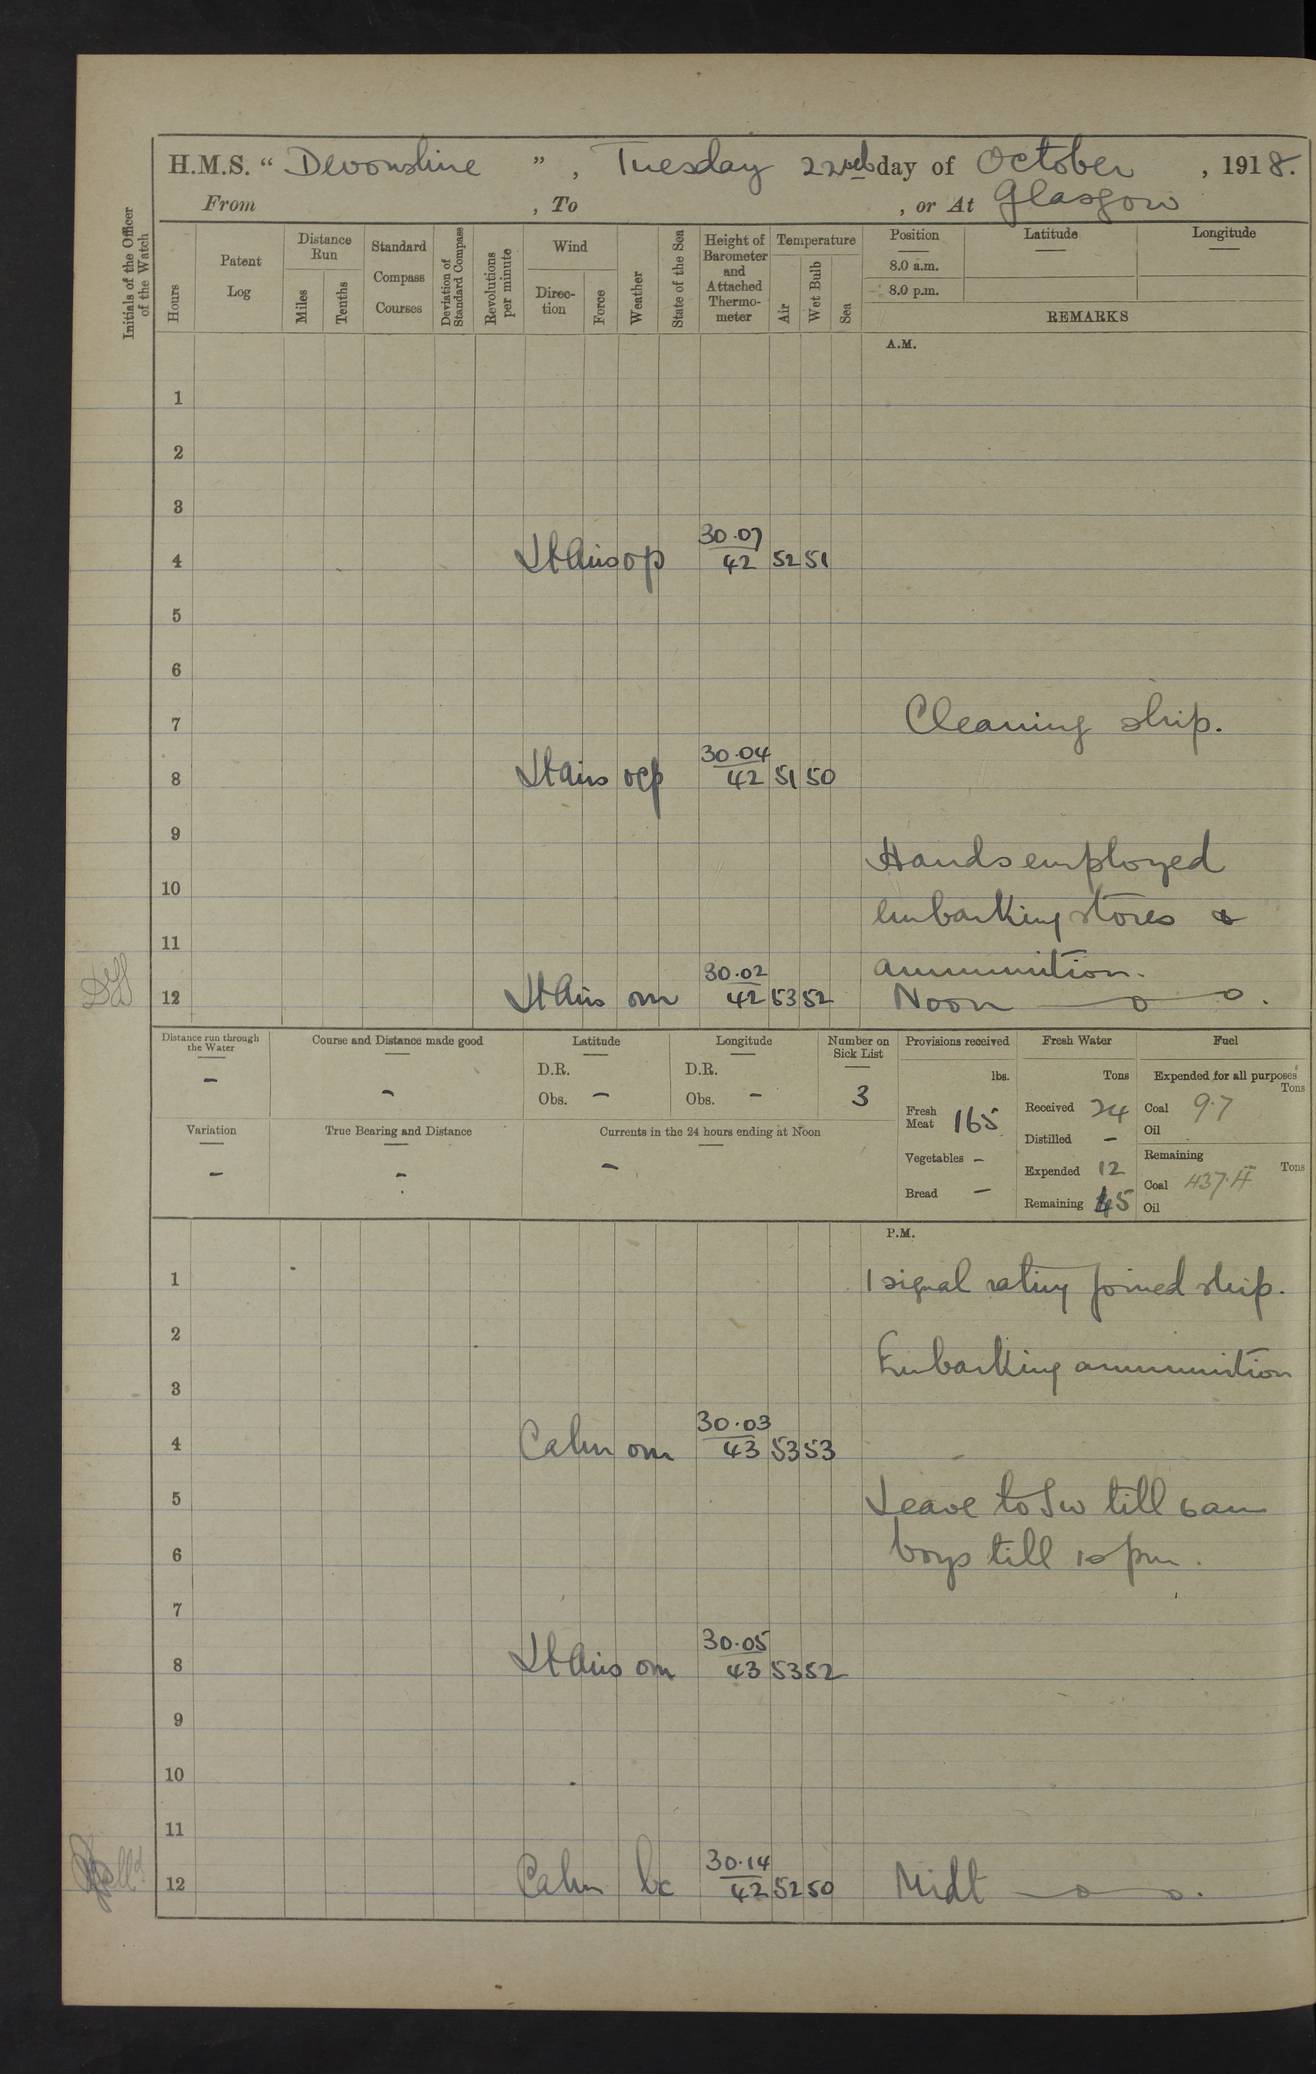 H.M.S. “ Devonshire ” , Tuesday 22nd day of October , 1918.
From , To , or At Glasgow
Initials of the Officer of the Watch
Hours
Patent Log
Distance Run
Miles
Tenths
Standard Compass Courses
Deviation of Standard Compass
Revolutions per minute
Wind
Direction
Force
Weather
State of the Sea
Height of Barometer and Attached Thermometer
Temperature
Air
Wet Bulb
Sea
Position Latitude Longitude
8.0 a.m.
8.0 p.m.
REMARKS
A.M.
1
2
3
30.07
4 Lt Airs op 42 52 51
5
6
7 Cleaning ship.
30.04
8 Lt airs ocp 42 51 50
9
Hands employed
10
embarking stores &
11
ammunition.
30.02
12 Lt Airs om 42 53 52 Noon
Distance run through the Water
-
Course and Distance made good
-
Latitude
D.R.
Obs. -
Longitude
D.R.
Obs. -
Number on Sick List
3
Variation
-
True Bearing and Distance
-
Currents in the 24 hours ending at Noon
-
Provisions received
lbs.
Fresh Meat 165
Vegetables -
Bread -
Fresh Water
Tons
Received 24
Distilled -
Expended 12
Remaining 45
Fuel
Expended for all purposes
Tons
Coal 9.7
Oil
Remaining
Tons
Coal 437.
Oil
P.M.
1 1 signal rating joined ship.
2
Embarking ammunition
3
30.03
4 Calm om 43 53 53
5 Leave to till 6am
6 boys till 10 pm.
7
30.05
8 Lt Airs om 43 53 52
9
10
11
30.14
12 Calm bc 42 52 50 Midt